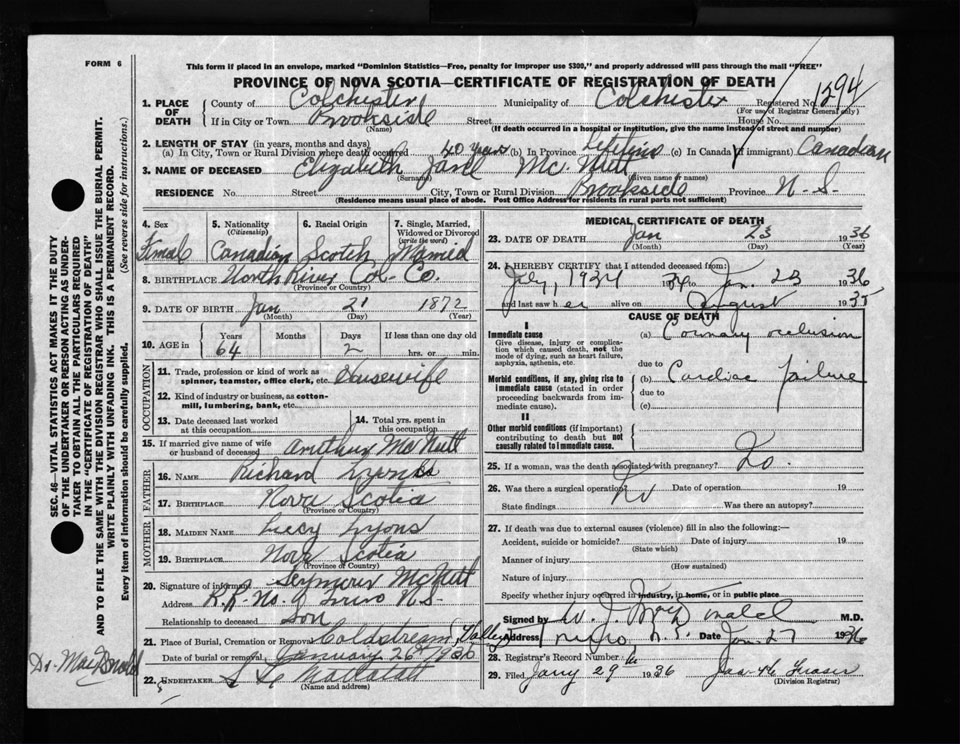 FORM 6
This form if placed in an envelope, marked "Dominion Statistics—Free, penalty for improper use $300," and properly addressed will pass through the mail "FREE"
PROVINCE OF NOVA SCOTIA—CERTIFICATE OF REGISTRATION OF DEATH
1. PLACE OF DEATH County of Colchester Municipality of Colchester Registered No. 1294
(For use of Registrar General only)
If in City or Town Brookside Street House No.
(Name) (If death occurred in a hospital or institution, give the name instead of street and number)
2. LENGTH OF STAY (in years, months and days)
(a) In City, Town or Rural Division where death occurred 40 years (b) In Province Lifetime (c) In Canada (if immigrant) Canadian
3. NAME OF DECEASED Elizabeth Jane McNutt
(Surname) (Given name or names)
RESIDENCE No. Street City, Town or Rural Division Brookside Province N-S-
(Residence means usual place of abode. Post Office Address for residents in rural parts not sufficient)
4. Sex 5. Nationality (Citizenship) 6. Racial Origin 7. Single, Married, Widowed or Divorced (write the word)
Female Canadian Scotch Married
8. BIRTHPLACE North River Col-Co.
(Province or Country)
9. DATE OF BIRTH Jan 21 1872
(Month) (Day) (Year)
10. AGE in Years Months Days If less than one day old
64 2 hrs. or min.
OCCUPATION
11. Trade, profession or kind of work as spinner, teamster, office clerk, etc. Housewife
12. Kind of industry or business, as cotton-mill, lumbering, bank, etc.
13. Date deceased last worked at this occupation 14. Total yrs. spent in this occupation
15. If married give name of wife or husband of deceased Arthur McNutt
FATHER
16. NAME Richard Lyons
17. BIRTHPLACE Nova Scotia
(Province or Country)
MOTHER
18. MAIDEN NAME Lucy Lyons
19. BIRTHPLACE Nova Scotia
(Province or Country)
20. Signature of informant Seymour McNutt
Address R.R. No. Truro N.S-
Relationship to deceased Son
21. Place of Burial, Cremation or Removal Coldstream Valley
Date of burial or removal January 26th 1936
22. UNDERTAKER
(Name and address)
MEDICAL CERTIFICATE OF DEATH
23. DATE OF DEATH Jan 23 1936
(Month) (Day) (Year)
24. I HEREBY CERTIFY that I attended deceased from:
July, 1934 to Jan. 23 1936
and last saw her alive on August 1935
CAUSE OF DEATH
I
Immediate cause
Give disease, injury or complication which caused death, not the mode of dying, such as heart failure, asphyxia, asthenia, etc.
(a) Coronary occlusion
due to
Morbid conditions, if any, giving rise to immediate cause (stated in order proceeding backwards from immediate cause).
(b) Cardiac failure
due to
(c)
II
Other morbid conditions (if important) contributing to death but not causally related to immediate cause.
25. If a woman, was the death associated with pregnancy? No.
26. Was there a surgical operation? No Date of operation 19
State findings Was there an autopsy?
27. If death was due to external causes (violence) fill in also the following:—
Accident, suicide or homicide? Date of injury 19
(State which)
Manner of injury
(How sustained)
Nature of injury
Specify whether injury occurred in industry, in home, or in public place
Signed by W. J. M.D.
Address Truro, N.S. Date Jan. 27 1936
28. Registrar's Record Number
29. Filed Jany 29 1936 Fraser
(Division Registrar)
SEC. 46—VITAL STATISTICS ACT MAKES IT THE DUTY OF THE UNDERTAKER OR PERSON ACTING AS UNDERTAKER TO OBTAIN ALL THE PARTICULARS REQUIRED IN THE "CERTIFICATE OF REGISTRATION OF DEATH" AND TO FILE THE SAME WITH THE DIVISION REGISTRAR WHO SHALL ISSUE THE BURIAL PERMIT.
WRITE PLAINLY WITH UNFADING INK. THIS IS A PERMANENT RECORD.
Every item of information should be carefully supplied. (See reverse side for instructions.)
Dr. MacDonald